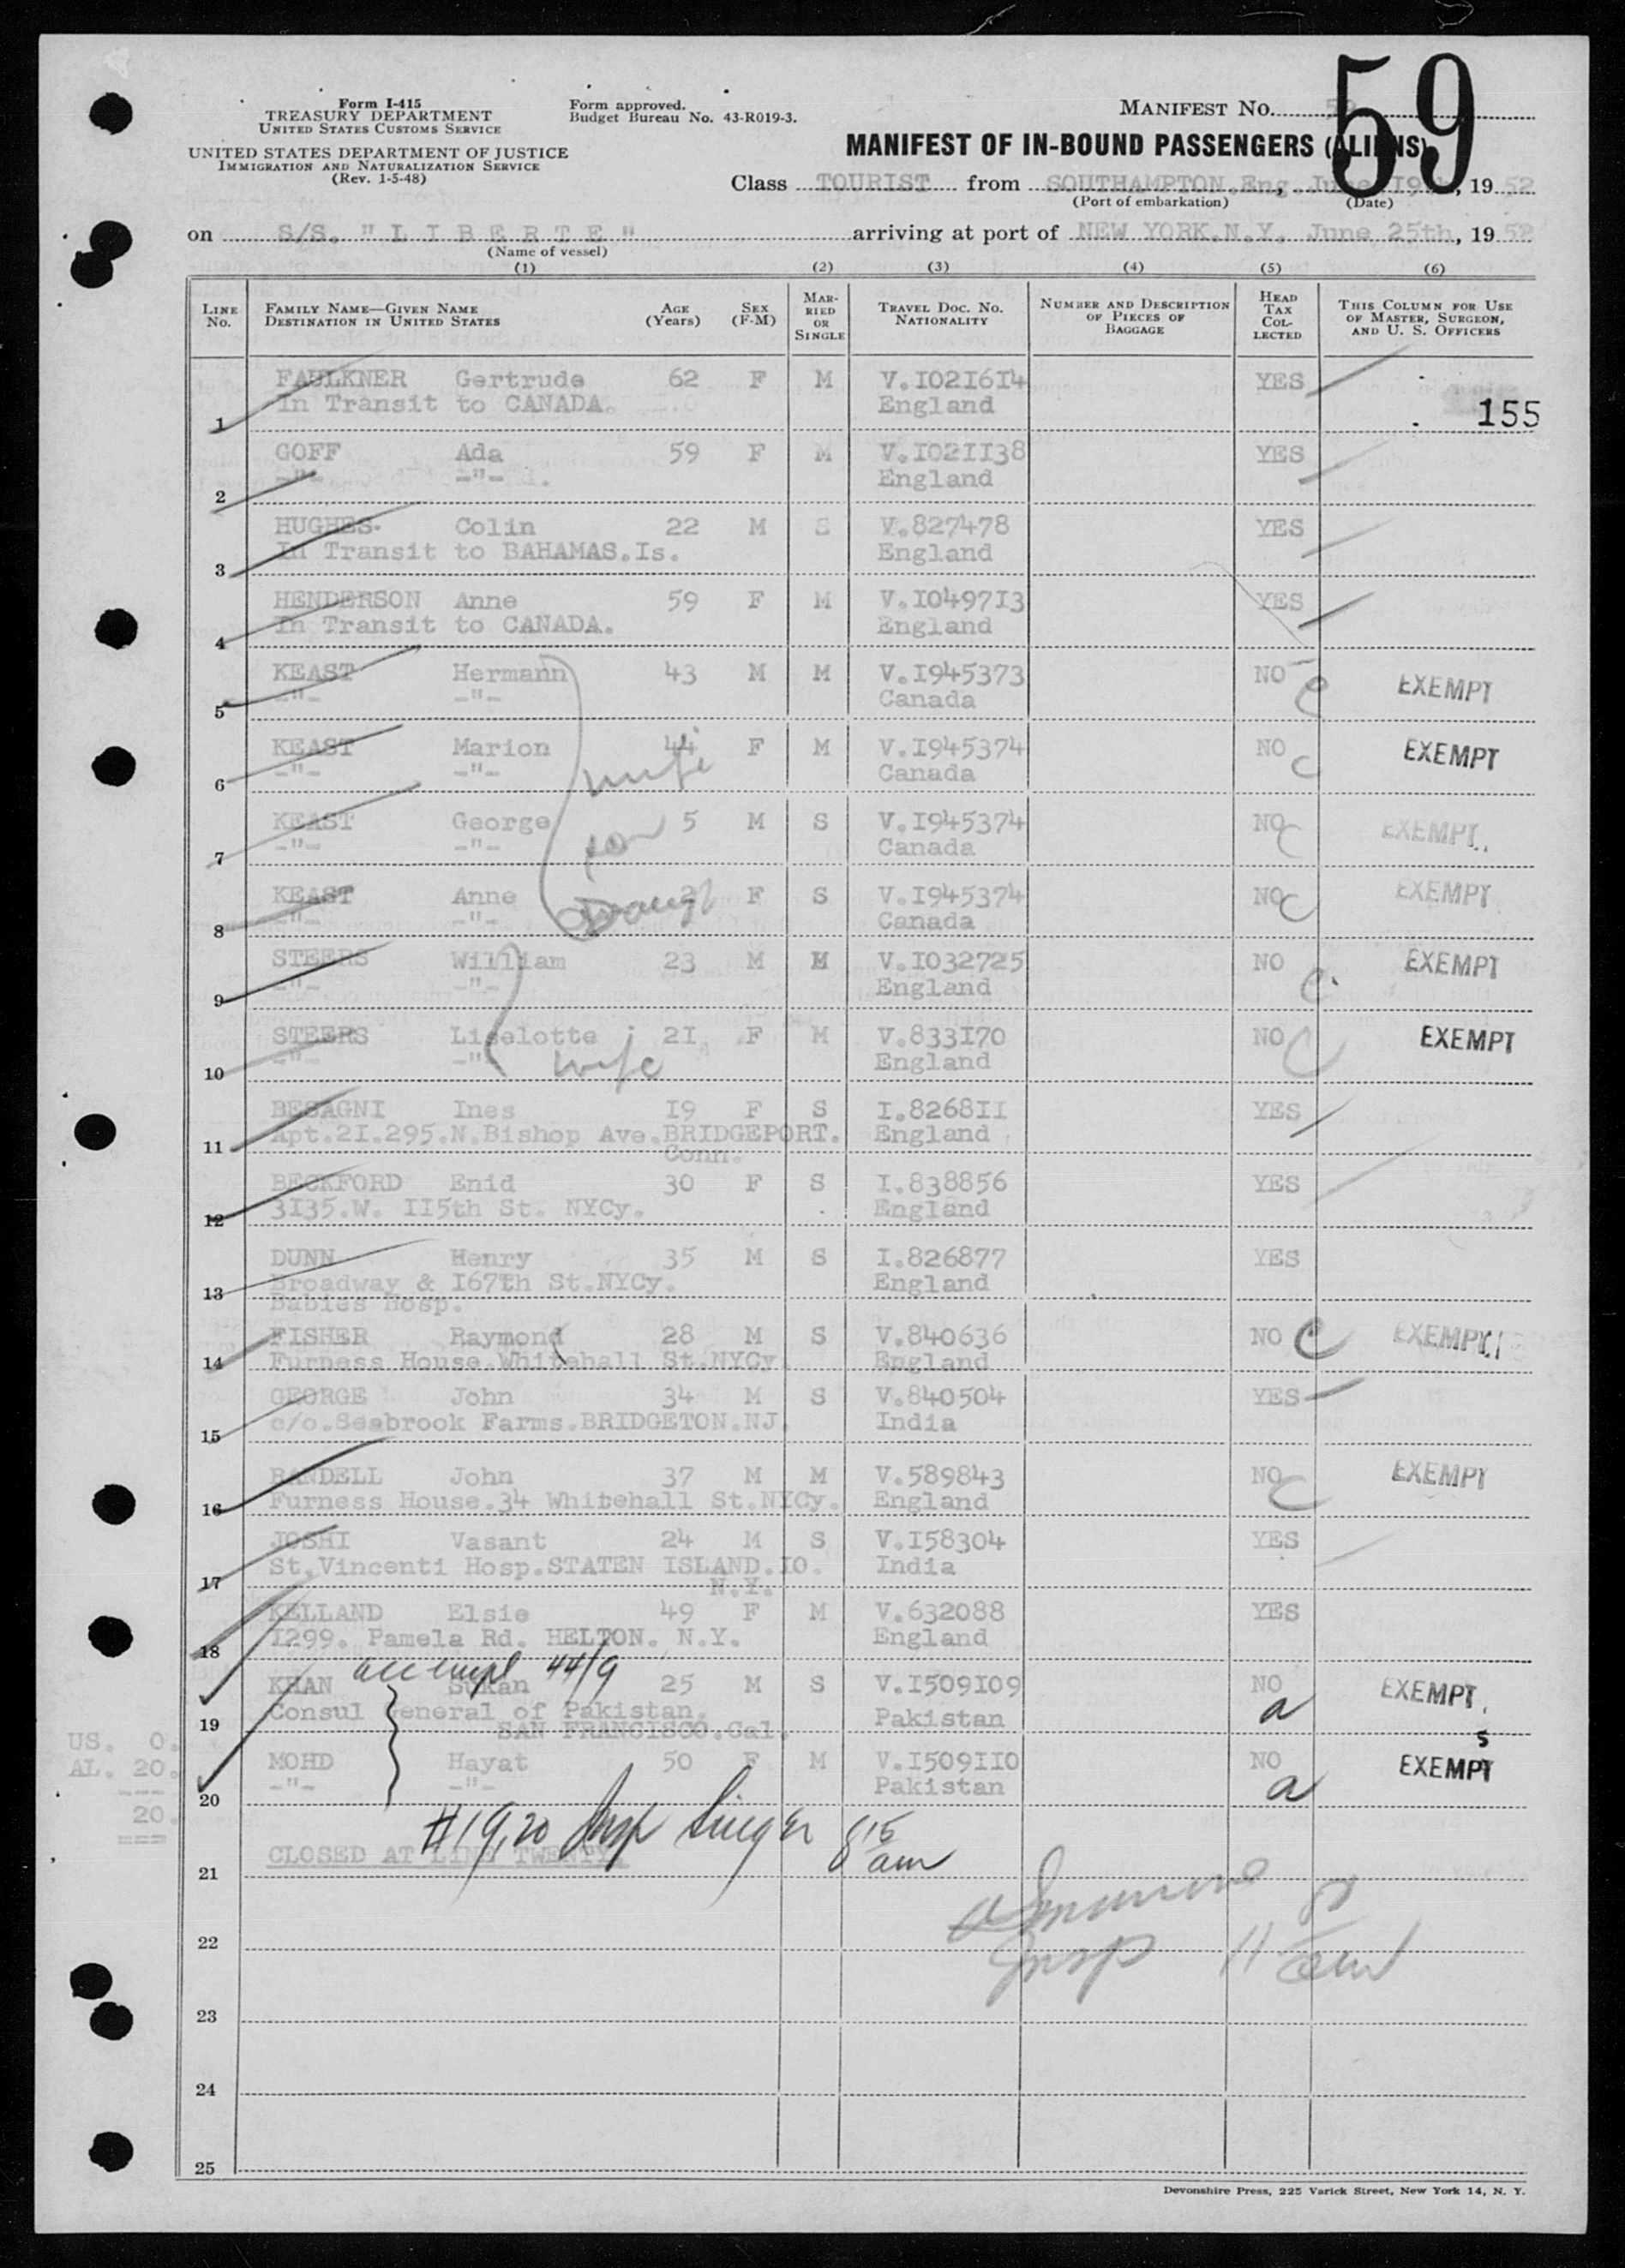 59
Form I-415
TREASURY DEPARTMENT
UNITED STATES CUSTOMS SERVICE
UNITED STATES DEPARTMENT OF JUSTICE
IMMIGRATION AND NATURALIZATION SERVICE
(Rev. 1-5-48)
Form approved.
Budget Bureau No. 43-R019-3.
MANIFEST No.
MANIFEST OF IN-BOUND PASSENGERS (ALIENS)
Class TOURIST from SOUTHAMPTON.Eng. June 19, 1952
(Port of embarkation) (Date)
on S/S. "LIBERTE" arriving at port of NEW YORK.N.Y. June 25th, 1952
(Name of vessel)
(1) (2) (3) (4) (5) (6)
LINE No. FAMILY NAME—GIVEN NAME DESTINATION IN UNITED STATES AGE (Years) SEX (F-M) MARRIED OR SINGLE TRAVEL DOC. NO. NATIONALITY NUMBER AND DESCRIPTION OF PIECES OF BAGGAGE HEAD TAX COLLECTED THIS COLUMN FOR USE OF MASTER, SURGEON, AND U. S. OFFICERS
FAULKNER Gertrude 62 F M V.I02I6I4 YES
1 In Transit to CANADA. England 155
GOFF Ada 59 F M V.I02II38 YES
2 -"- -"- England
HUGHES Colin 22 M S V.827478 YES
3 In Transit to BAHAMAS.Is. England
HENDERSON Anne 59 F M V.I0497I3 YES
4 In Transit to CANADA. England
KEAST Hermann 43 M M V.I945373 NO C EXEMPT
5 -"- -"- Canada
KEAST Marion 44 F M V.I945374 NO C EXEMPT
6 -"- -"- wife Canada
KEAST George 5 M S V.I945374 NO C EXEMPT
7 -"- -"- son Canada
KEAST Anne F S V.I945374 NO C EXEMPT
8 -"- -"- Daugh Canada
STEERS William 23 M M V.I032725 NO C. EXEMPT
9 -"- -"- England
STEERS Liselotte 2I F M V.833I70 NO C EXEMPT
10 -"- -"- wife England
BESAGNI Ines I9 F S I.8268II YES
11 Apt.2I.295.N.Bishop Ave.BRIDGEPORT. England
Conn.
BECKFORD Enid 30 F S I.838856 YES
12 3I35.W. II5th St. NYCy. England
DUNN Henry 35 M S I.826877 YES
13 Broadway & I67th St.NYCy. England
Babies Hosp.
FISHER Raymond 28 M S V.840636 NO C EXEMPT
14 Furness House.Whitehall St.NYCy England
GEORGE John 34 M S V.840504 YES
15 c/o.Seabrook Farms.BRIDGETON.NJ. India
RANDELL John 37 M M V.589843 NO C EXEMPT
16 Furness House.34 Whitehall St.NYCy. England
JOSHI Vasant 24 M S V.I58304 YES
17 St.Vincenti Hosp.STATEN ISLAND.IO. India
N.Y.
KELLAND Elsie 49 F M V.632088 YES
18 I299. Pamela Rd. HELTON. N.Y. England
44/9
KHAN Sultan 25 M S V.I509I09 NO a EXEMPT
19 Consul General of Pakistan. Pakistan
SAN FRANCISCO.Cal.
MOHD Hayat 50 F M V.I509II0 NO a EXEMPT S
20 -"- -"- Pakistan
US. 0.
AL. 20.
20.
#19,20 Insp Singer 8 15 am
21 CLOSED AT LINE TWENTY
22 Insp 11 am
23
24
25
Devonshire Press, 225 Varick Street, New York 14, N. Y.